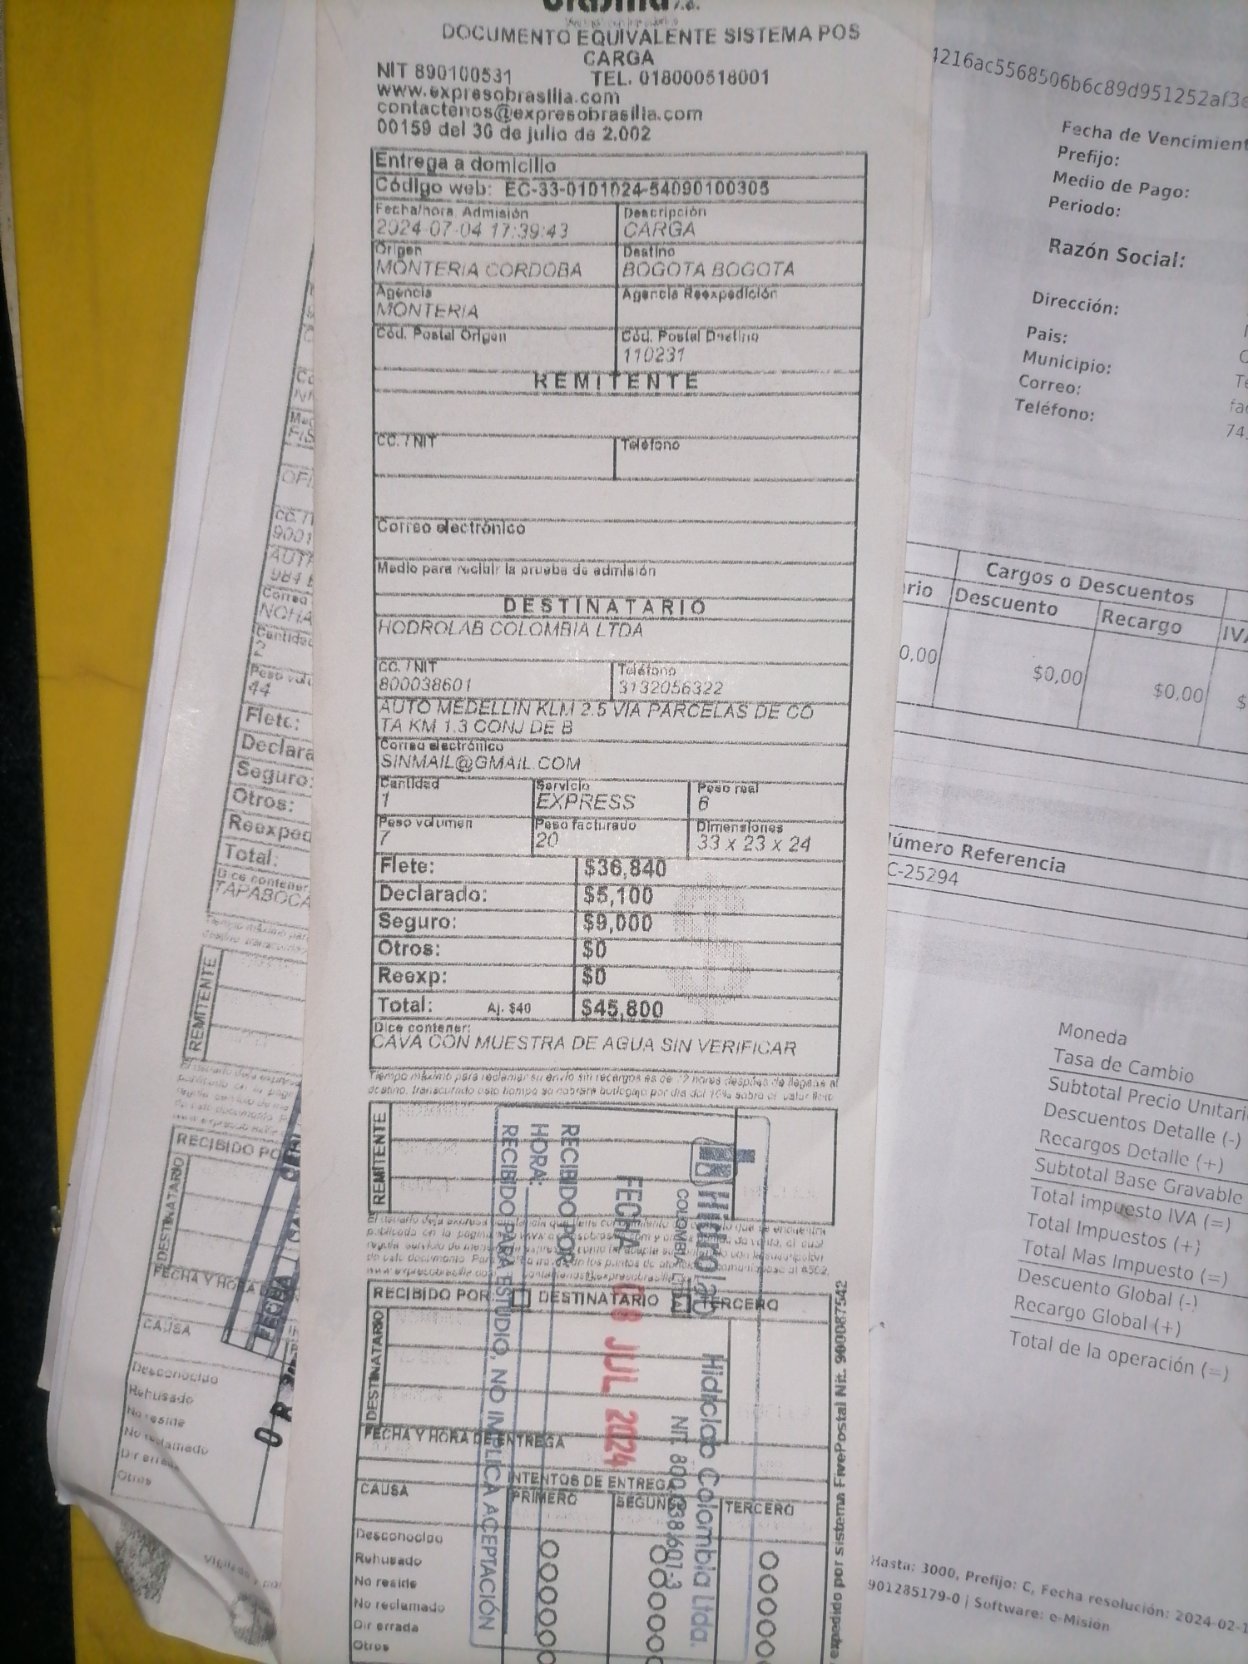 DOCUMENTO EQUIVALENTE SISTEMA POS
CARGA
NIT 890100531 TEL. 018000518001
www.expresobrasilia.com
contactenos@expresobrasilia.com
00159 del 30 de julio de 2.002
Entrega a domicilio
Código web: EC-33-0101024-54090100305
Fecha/hora Admisión Descripción
2024-07-04 17:39:43 CARGA
Origen Destino
MONTERIA CORDOBA BOGOTA BOGOTA
Agencia Agencia Reexpedición
MONTERIA
Cód. Postal Origen Cód. Postal Destino
110231
REMITENTE
CC. / NIT Teléfono
Correo electrónico
Medio para recibir la prueba de admisión
DESTINATARIO
HODROLAB COLOMBIA LTDA
CC. / NIT Teléfono
800038601 3132056322
AUTO MEDELLIN KLM 2.5 VIA PARCELAS DE CO
TA KM 1.3 CONJ DE B
Correo electrónico
SINMAIL@GMAIL.COM
Cantidad Servicio Peso real
1 EXPRESS 6
Peso volumen Peso facturado Dimensiones
7 20 33 x 23 x 24
Flete: $36,840
Declarado: $5,100
Seguro: $9,000
Otros: $0
Reexp: $0
Total: Aj. $40 $45,800
Dice contener:
CAVA CON MUESTRA DE AGUA SIN VERIFICAR
REMITENTE
RECIBIDO POR: DESTINATARIO TERCERO
DESTINATARIO
FECHA Y HORA DE ENTREGA
INTENTOS DE ENTREGA
CAUSA PRIMERO SEGUNDO TERCERO
Desconocido
Rehusado
No reside
No reclamado
Dir errada
Otros
expedido por sistema FivePostal Nit. 900087542
Hidrolab
COLOMBIA LTDA
Hidrolab Colombia Ltda.
NIT. 800.038.601-3
FECHA 08 JUL 2024
RECIBIDO POR:
HORA:
RECIBIDO PARA ESTUDIO, NO IMPLICA ACEPTACIÓN
4216ac5568506b6c89d951252af3
Fecha de Vencimient
Prefijo:
Medio de Pago:
Periodo:
Razón Social:
Dirección:
Pais:
Municipio:
Correo:
Teléfono:
74
Cargos o Descuentos
rio Descuento Recargo IVA
0,00 $0,00 $0,00 $
úmero Referencia
C-25294
Moneda
Tasa de Cambio
Subtotal Precio Unitari
Descuentos Detalle (-)
Recargos Detalle (+)
Subtotal Base Gravable
Total impuesto IVA (=)
Total Impuestos (+)
Total Mas Impuesto (=)
Descuento Global (-)
Recargo Global (+)
Total de la operación (=)
Hasta: 3000, Prefijo: C, Fecha resolución: 2024-02-1
901285179-0 | Software: e-Misión
9001
2
44
Flete:
Declara
Seguro:
Otros:
Reexped
Total:
Dice contener
TAPABOCA
REMITENTE
RECIBIDO PO
DESTINATARIO
FECHA Y HORA DE
CAUSA
Desconocido
Rehusado
No reside
No reclamado
Dir errada
Otros
FECHA